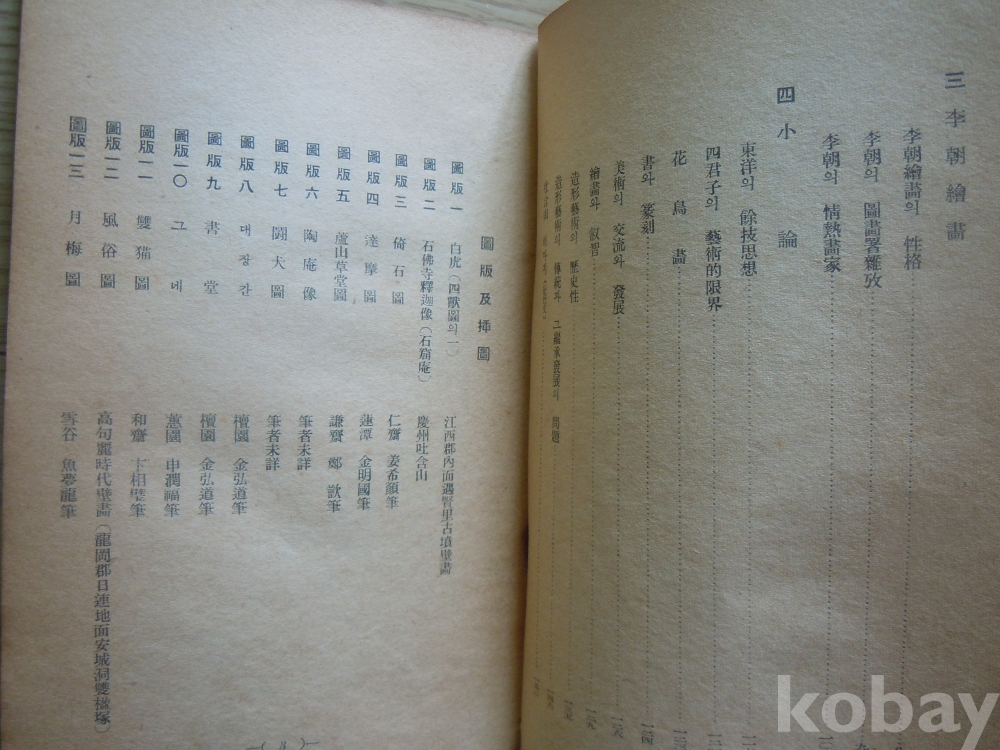 三 李朝繪畫
李朝繪畫의 性格
李朝의 圖畫署雜攷
李朝의 情熱畫家
四 小論
東洋의 餘技思想
四君子의 藝術的限界
花鳥畫
書와 篆刻
美術의 交流와 發展
繪畫와 叡智
造形藝術의 歷史性
造形藝術의 傳統과 그 繼承發展의 問題
圖版及揷圖
圖版一 白虎(四獸圖의一) 江西郡內面遇賢里古墳壁畵
圖版二 石佛寺釋迦像(石窟庵) 慶州吐含山
圖版三 倚石圖 仁齋 姜希顔筆
圖版四 達摩圖 蓮潭 金明國筆
圖版五 蘆山草堂圖 謙齋 鄭敾筆
圖版六 陶庵像 筆者未詳
圖版七 鬪犬圖 筆者未詳
圖版八 대장간 檀園 金弘道筆
圖版九 書堂 檀園 金弘道筆
圖版一〇 그네 蕙園 申潤福筆
圖版一一 雙猫圖 和齋 卞相璧筆
圖版一二 風俗圖 高句麗時代壁畵(龍岡郡日連地面安城洞雙楹塚)
圖版一三 月梅圖 雪谷 魚夢龍筆
kobay